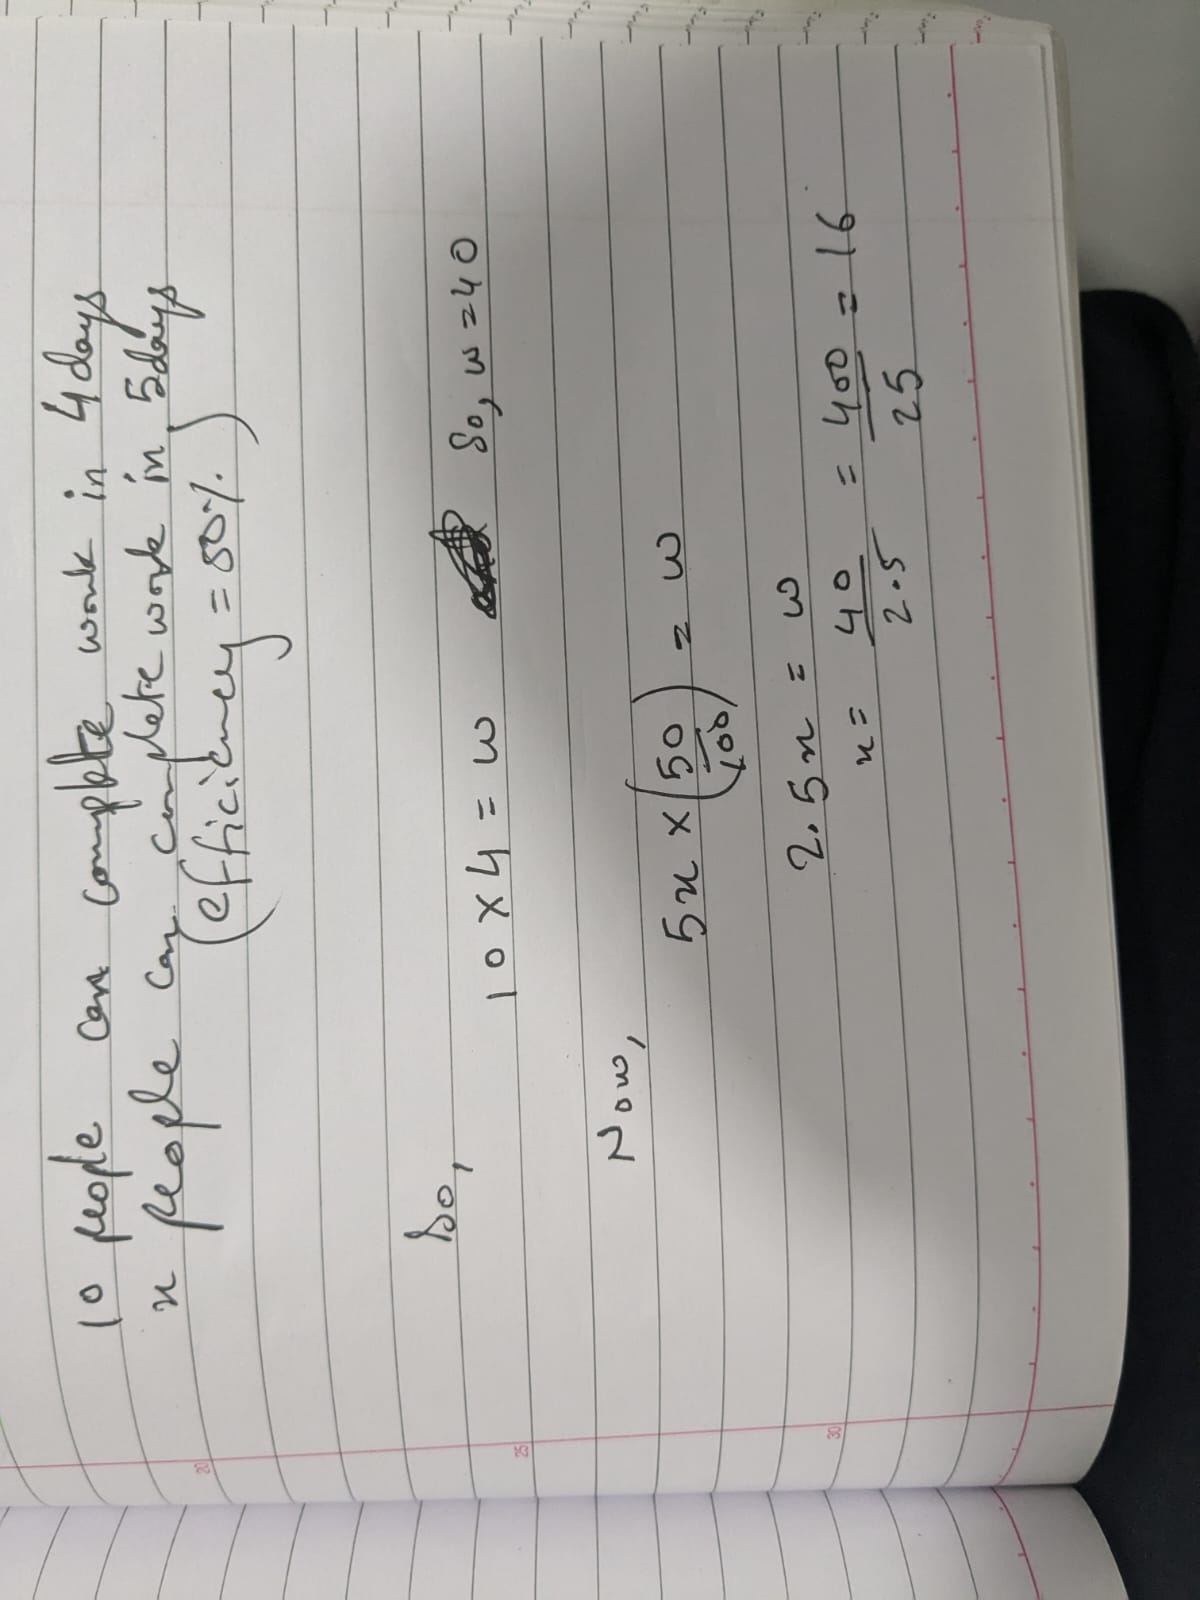 10 people can complete work in 4 days
x people can complete work in 5 days
(efficiency = 50%)
So,
10 × 4 = w So, w = 40
Now,
5x × (50/100) = w
2.5x = w
x = 40/2.5 = 400/25 = 16
20
25
30